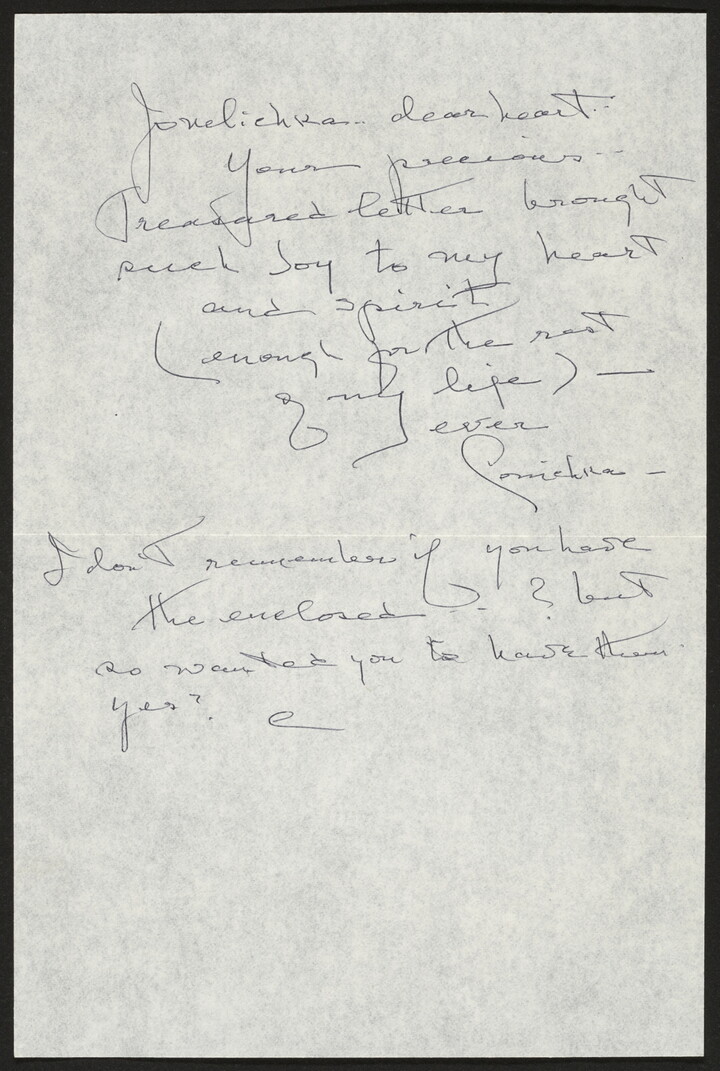 Jonelichka.. dear heart..
Your precious..
Treasured letter brought
such joy to my heart
and spirit
(enough for the rest
of my life) —
ever
Sonichka —
I don't remember if you have
the enclosed . . ? but
so wanted you to have them.
yes?